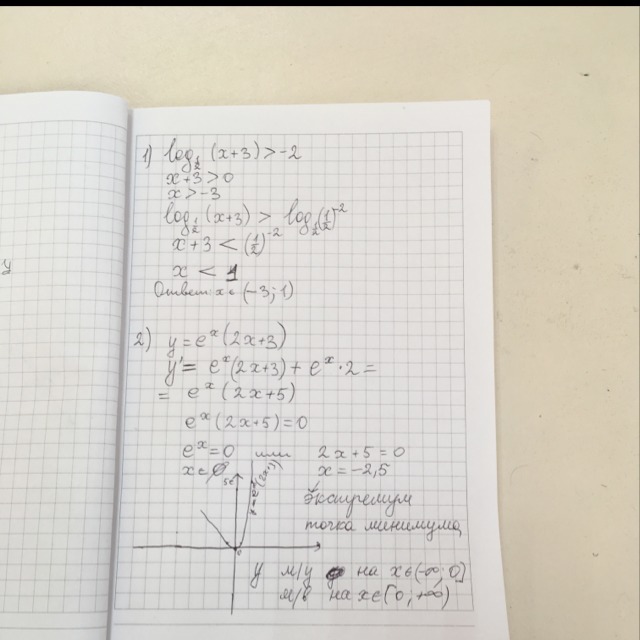 1) log½ (x+3) > -2
x+3>0
x>-3
log½ (x+3) > log½ (½)⁻²
x+3 < (½)⁻²
x < 1
Ответ: x ∈ (-3; 1)
2) y = eˣ(2x+3)
y' = eˣ(2x+3) + eˣ·2 =
= eˣ(2x+5)
eˣ(2x+5)=0
eˣ=0 или 2x+5=0
x∈∅ x=-2,5
экстремум
точка минимума
y м/у на x∈(-∞; 0]
м/в на x∈[0; +∞)